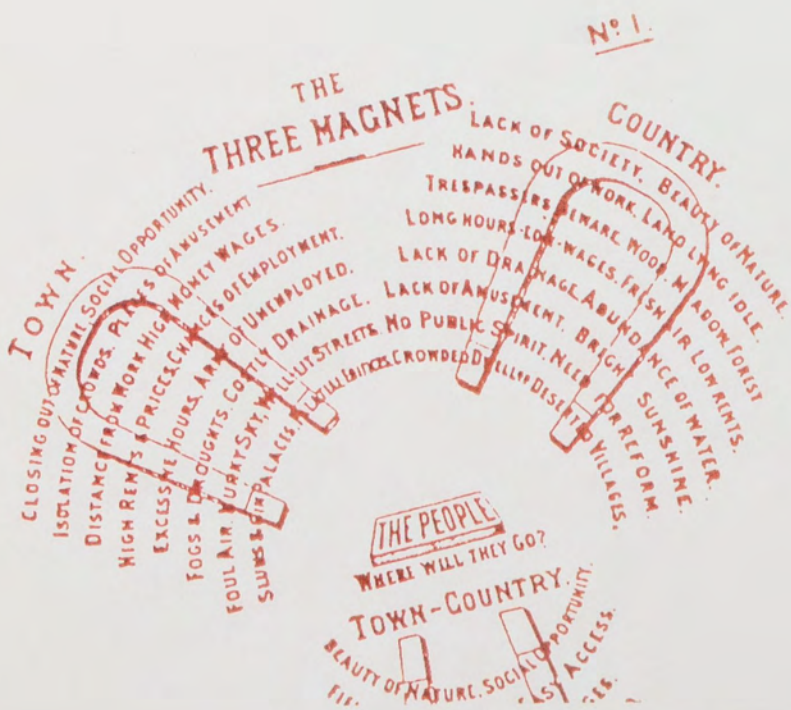 Nº 1.
THE
THREE MAGNETS.
TOWN.
CLOSING OUT OF NATURE. SOCIAL OPPORTUNITY.
ISOLATION OF CROWDS. PLACES OF AMUSEMENT
DISTANCE FROM WORK. HIGH MONEY WAGES.
HIGH RENTS & PRICES. CHANCES OF EMPLOYMENT.
EXCESSIVE HOURS. ARMY OF UNEMPLOYED.
FOGS & DROUGHTS. COSTLY DRAINAGE.
FOUL AIR. MURKY SKY. WELL LIT STREETS.
SLUMS & GIN PALACES. EDIFICES.
COUNTRY.
LACK OF SOCIETY. BEAUTY OF NATURE.
HANDS OUT OF WORK. LAND LYING IDLE.
TRESPASSERS BEWARE. WOOD, MEADOW, FOREST
LONG HOURS-LOW WAGES. FRESH AIR. LOW RENTS.
LACK OF DRAINAGE. ABUNDANCE OF WATER.
LACK OF AMUSEMENT. BRIGHT SUNSHINE.
NO PUBLIC SPIRIT. NEED FOR REFORM.
CROWDED DWELLGS DESERTED VILLAGES.
THE PEOPLE
WHERE WILL THEY GO?
TOWN-COUNTRY.
BEAUTY OF NATURE. SOCIAL OPPORTUNITY.
EASY ACCESS.